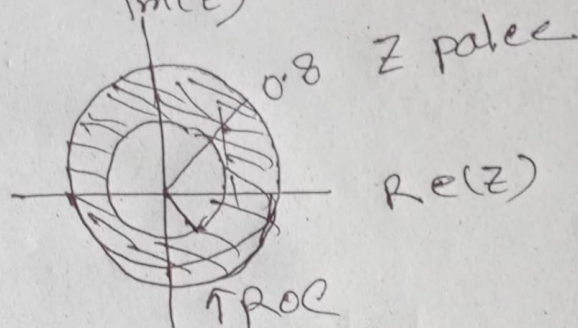 Im(z)
0.8
Z palee
Re(z)
↑ ROC